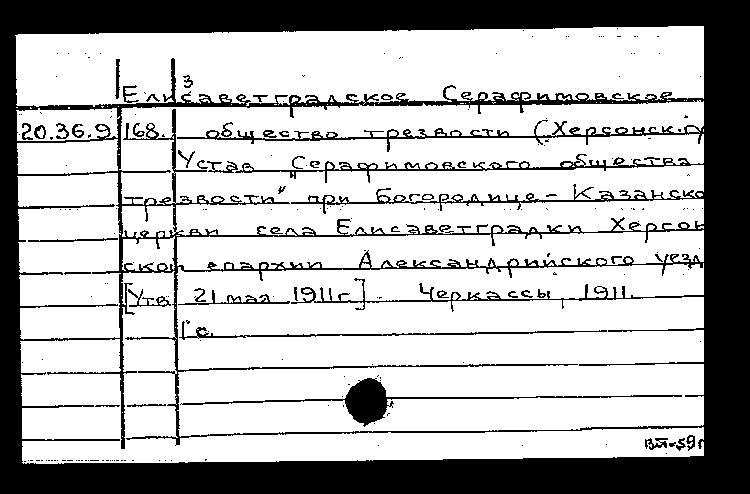 3
Елисаветградское Серафимовское
20.36.9.168. общество трезвости (Херсонск.гу
Устав „Серафимовского общества
трезвости" при Богородице-Казанско
церкви села Елисаветградки Херсон
ской епархии Александрийского уезд
[Утв. 21 мая 1911г.]. Черкассы, 1911.
1 с.